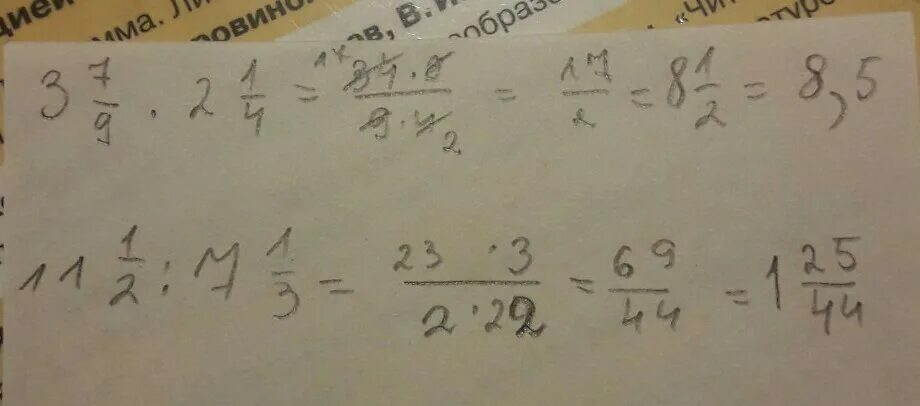 цией
мма. Ли
ровино
ов, В. И
ообразо
"Чит
атуро
3 7/9 · 2 1/4 = 34·9/9·4 = 17/2 = 8 1/2 = 8,5
17
2
11 1/2 : 7 1/3 = 23·3/2·22 = 69/44 = 1 25/44